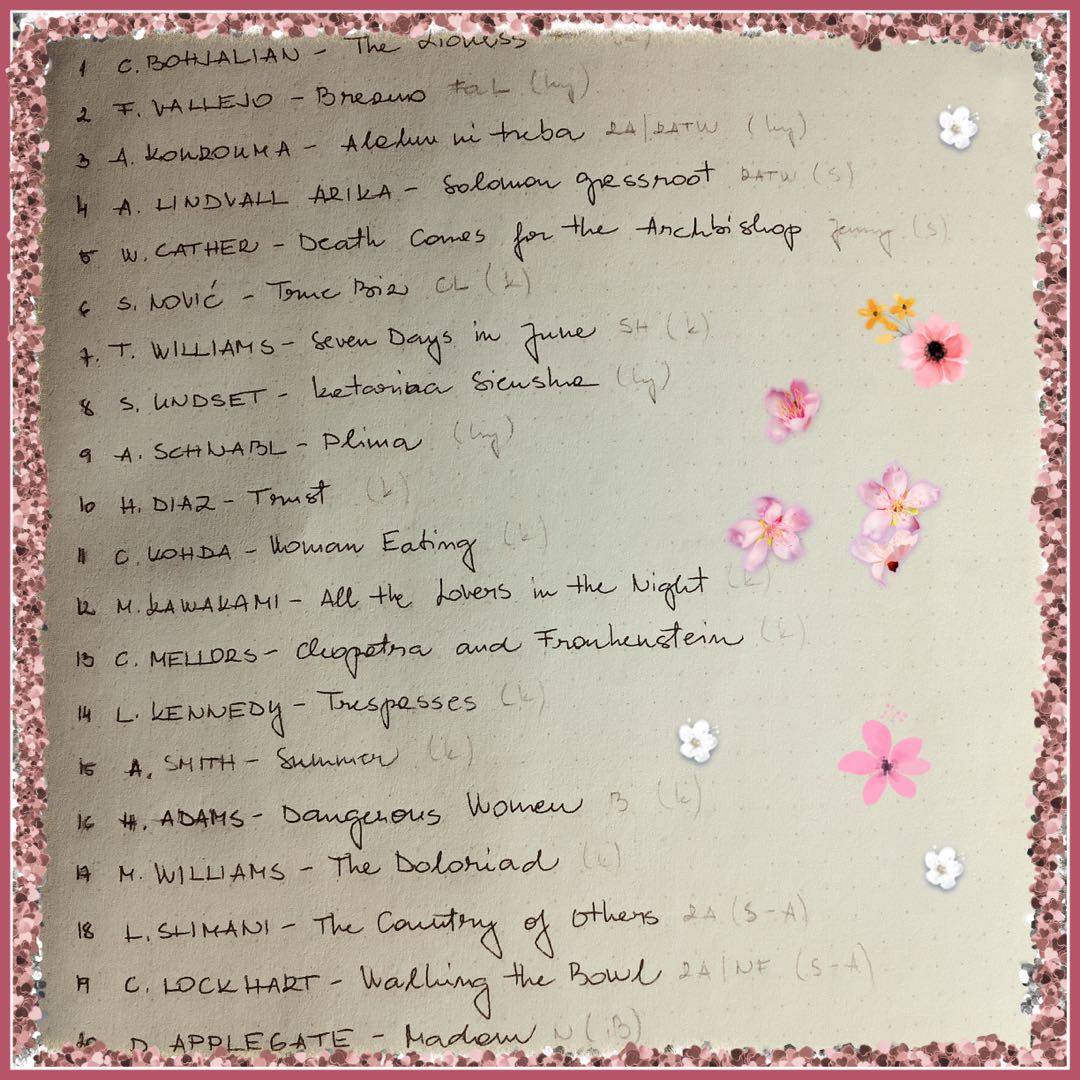 1 C. BOHJALIAN - The Lioness
2 F. VALLEJO - Brezno FaL (knj)
3 A. KOUROUMA - Alahu ni treba RA/RATW (knj)
4 A. LINDVALL ARIKA - Solomon grassroot RATW (S)
5 W. CATHER - Death Comes for the Archbishop Jenny (S)
6 S. NOVIĆ - True Biz CL (k)
7. T. WILLIAMS - Seven Days in June SH (k)
8 S. UNDSET - Katarina Sienska (knj)
9 A. SCHNABL - Plima (knj)
10 H. DIAZ - Trust (k)
11 C. KOHDA - Woman Eating (k)
12 M. KAWAKAMI - All the Lovers in the Night (k)
13 C. MELLORS - Cleopatra and Frankenstein (k)
14 L. KENNEDY - Trespasses (k)
15 A. SMITH - Summer (k)
16 H. ADAMS - Dangerous Women B (k)
17 M. WILLIAMS - The Doloriad (k)
18 L. SLIMANI - The Country of Others RA (S-A)
19 C. LOCKHART - Walking the Bowl RA/NF (S-A)
20 D. APPLEGATE - Madam N (B)